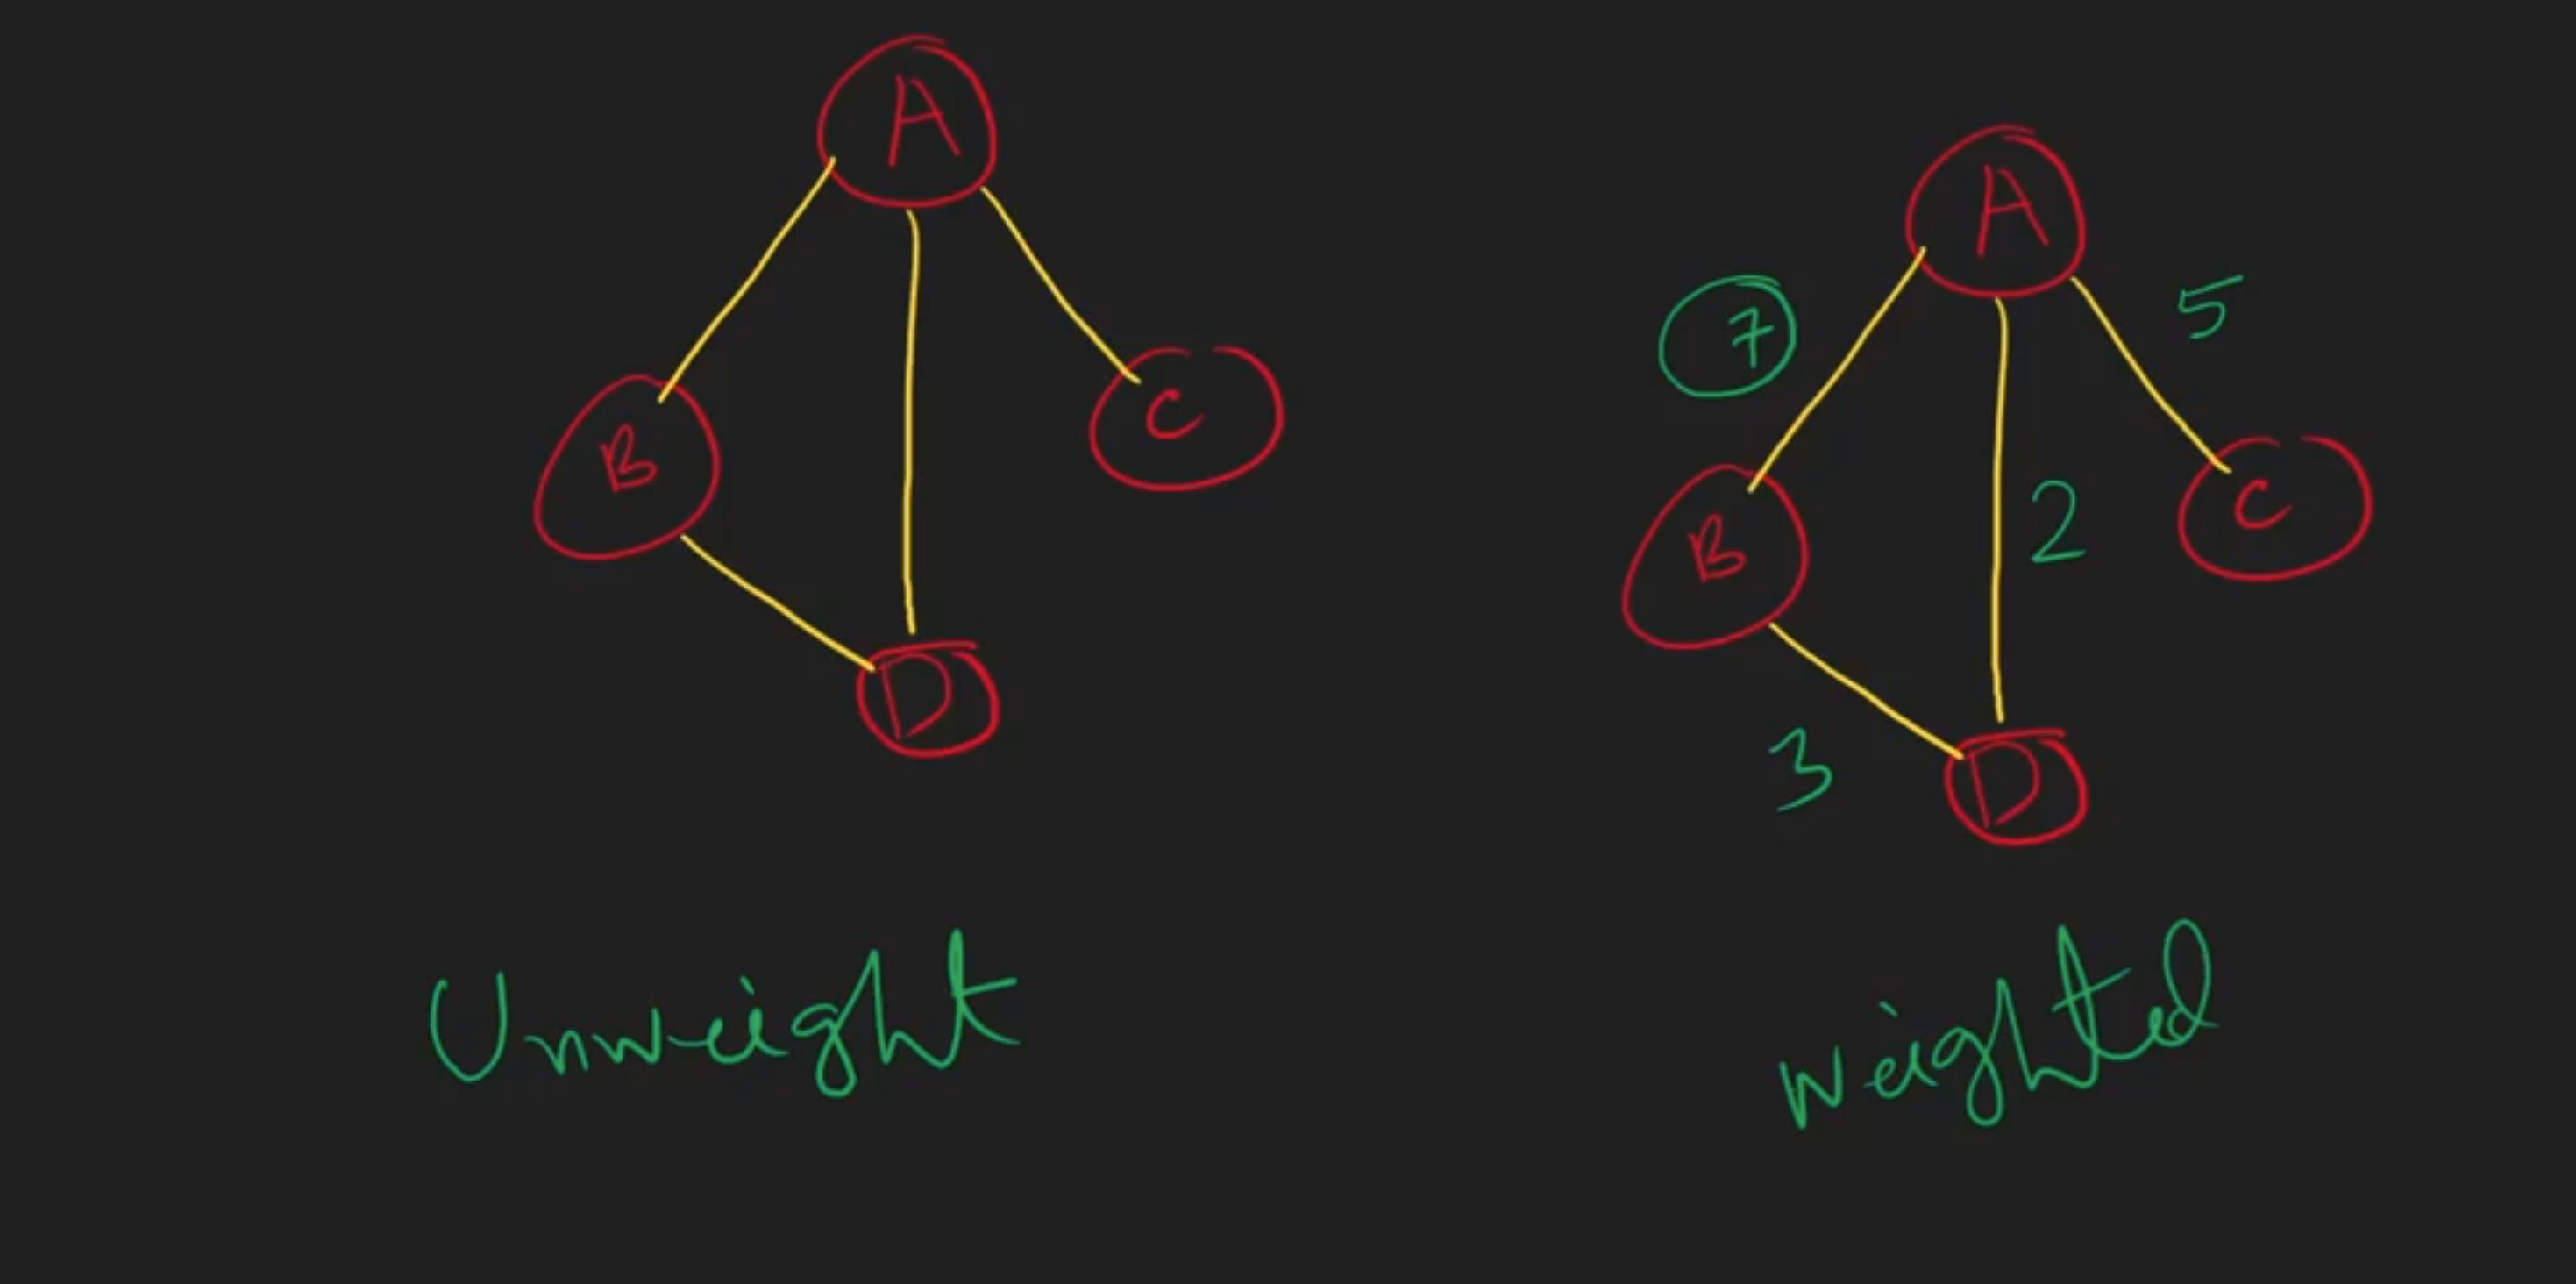 A
B
C
D
Unweight
A
7
5
B
2
C
3
D
weighted